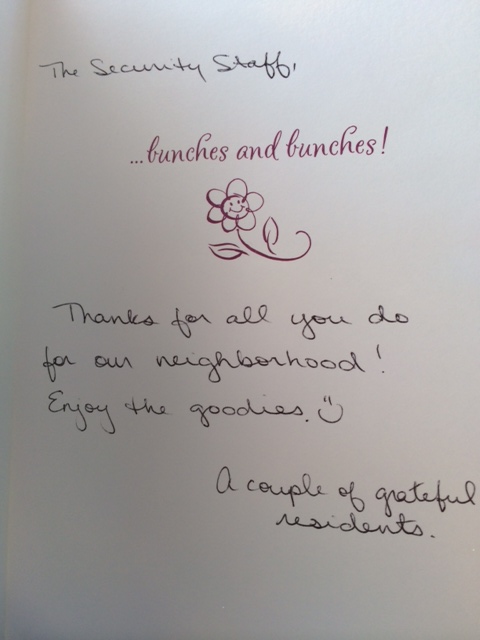 The Security Staff,
...bunches and bunches!
Thanks for all you do
for our neighborhood!
Enjoy the goodies. Ü
A couple of grateful
residents.